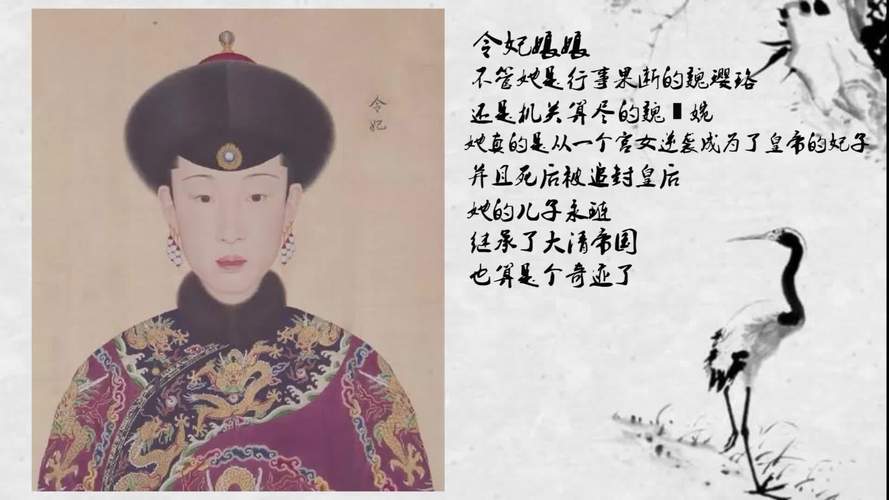 令妃
令妃娘娘
不管她是行事果断的魏璎珞
还是机关算尽的魏 婉
她真的是从一个宫女逆袭成为了皇帝的妃子
并且死后被追封皇后
她的儿子永琏
继承了大清帝国
也算是个奇迹了